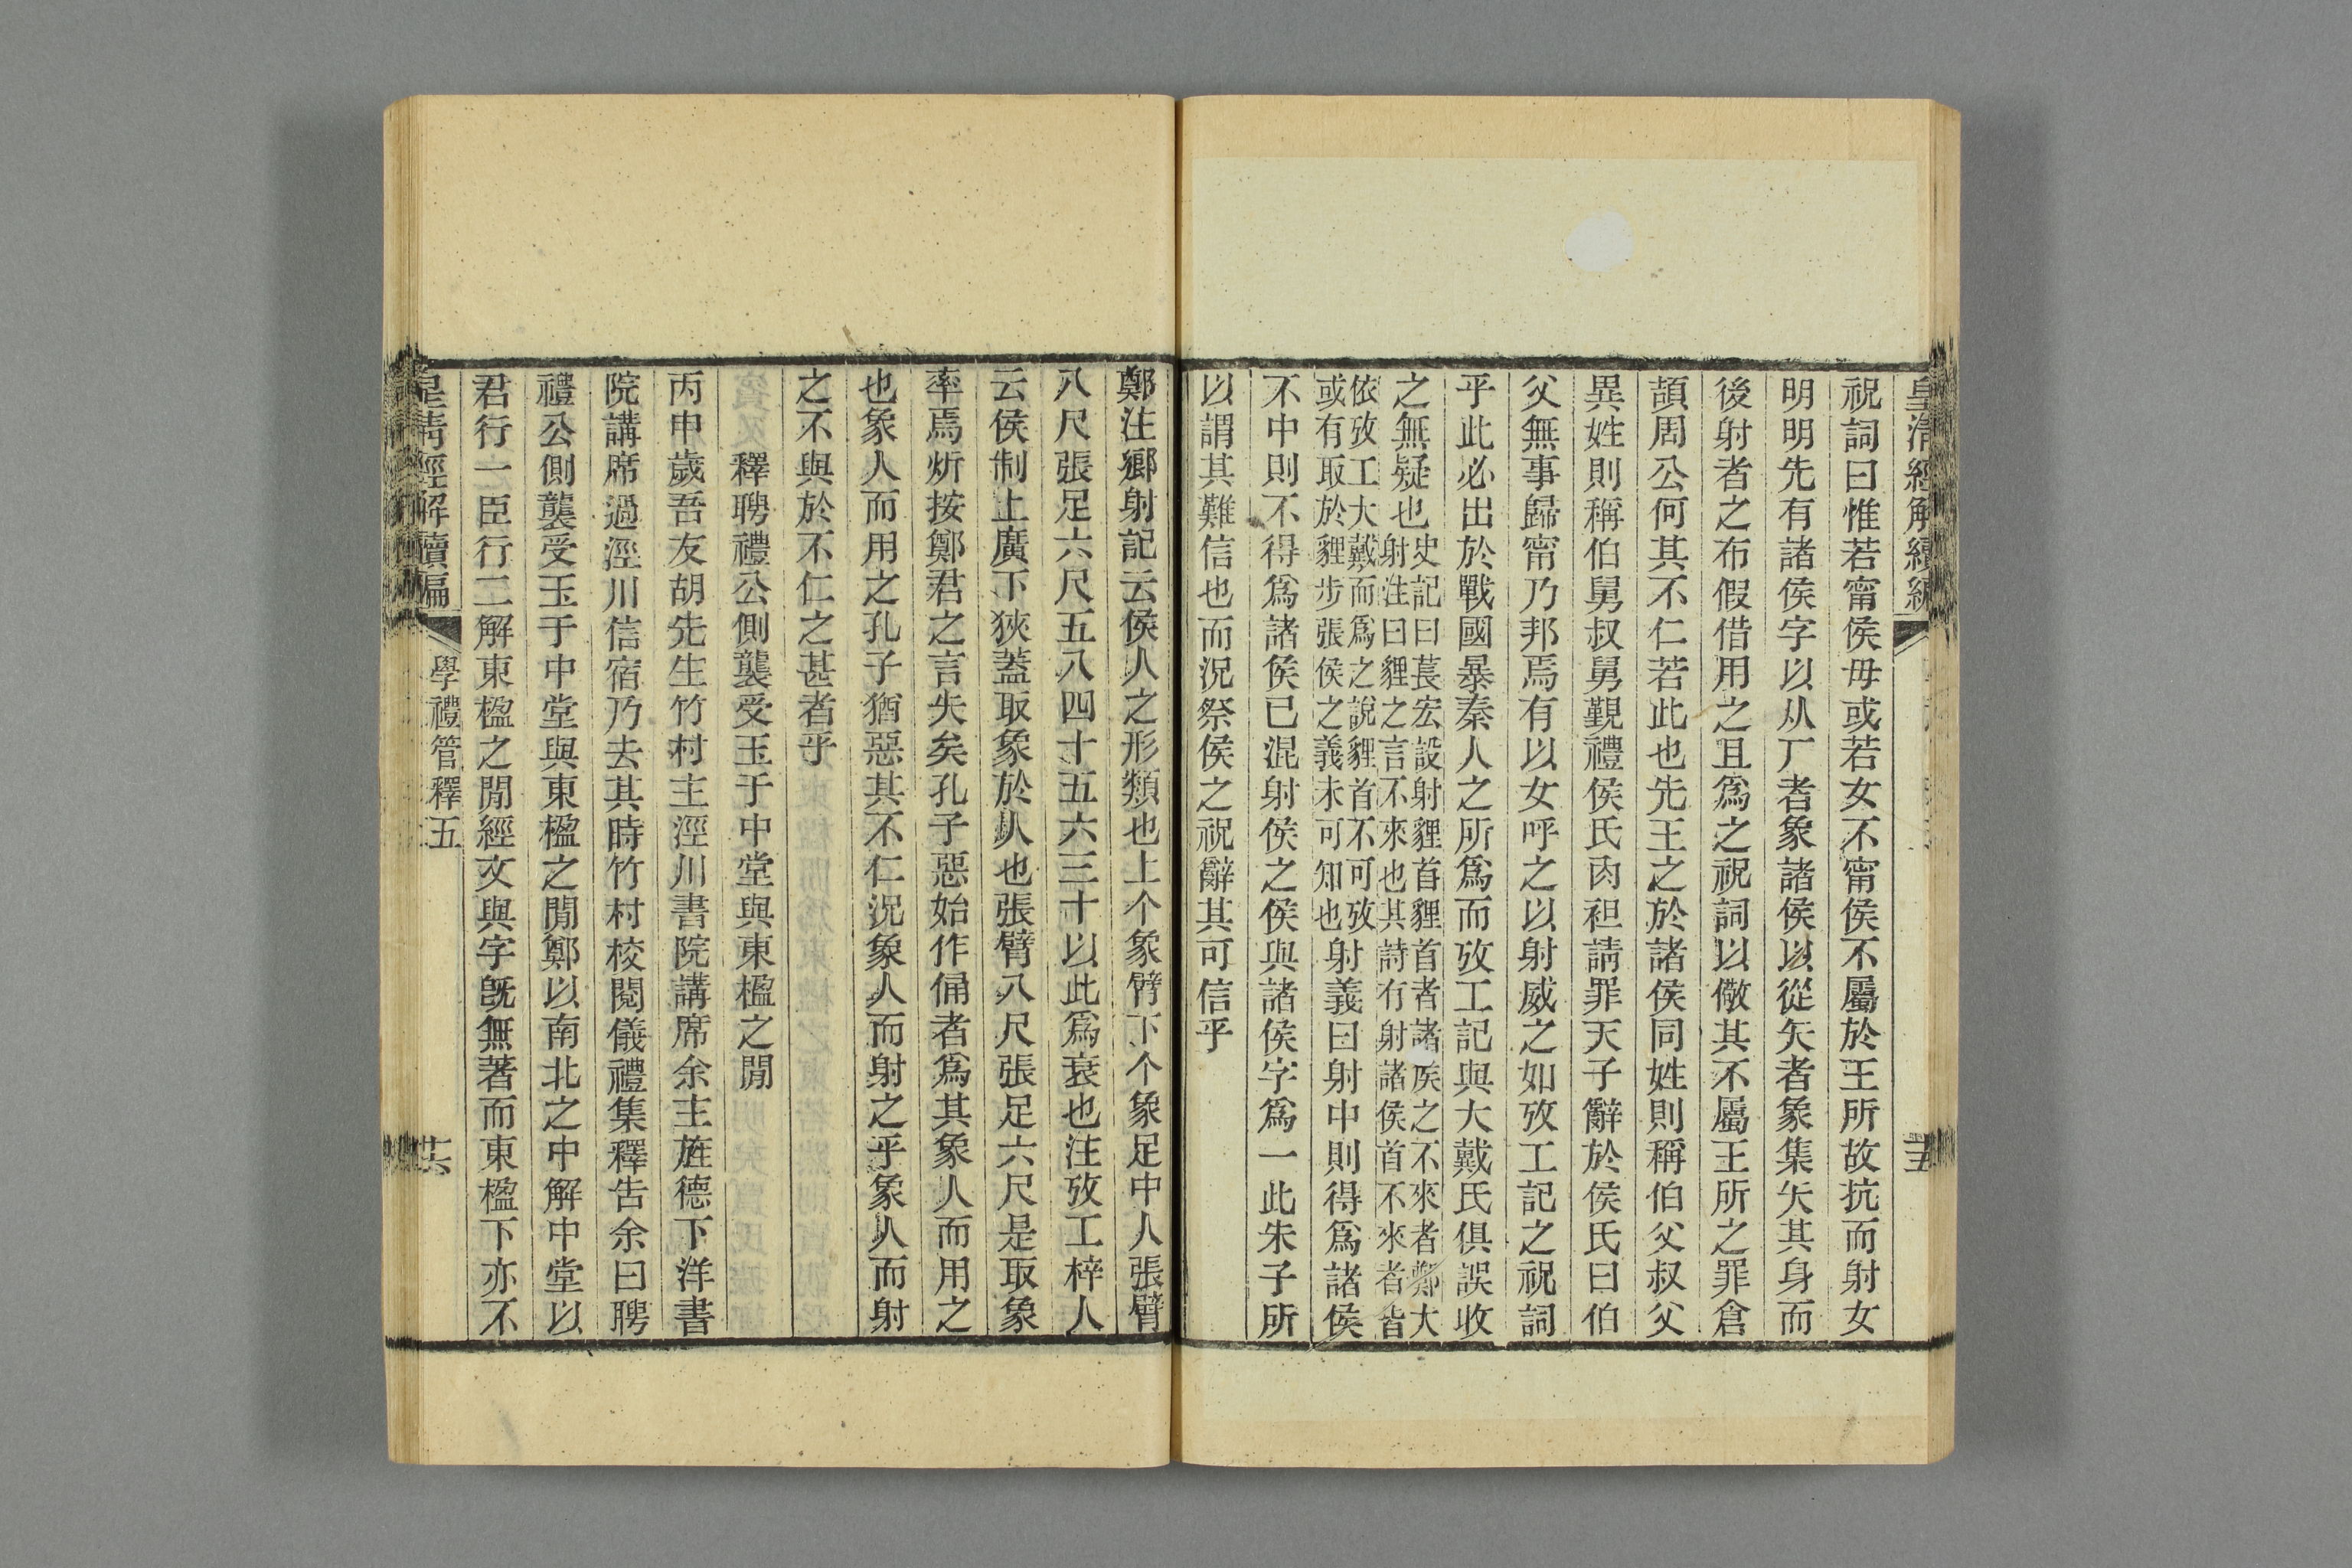 皇清經解續編
祝詞曰惟若甯侯毋或若女不甯侯不屬於王所故抗而射女
明明先有諸侯字以从厂者象諸侯以從矢者象集矢其身而
後射者之布假借用之且爲之祝詞以儆其不屬王所之罪倉
頡周公何其不仁若此也先王之於諸侯同姓則稱伯父叔父
異姓則稱伯舅叔舅覲禮侯氏肉袒請罪天子辭於侯氏曰伯
父無事歸甯乃邦焉有以女呼之以射威之如攷工記之祝詞
乎此必出於戰國暴秦人之所爲而攷工記與大戴氏俱誤收
之無疑也史記曰萇宏設射貍首貍首者諸矦之不來者鄭大
射注曰貍之言不來也其詩有射諸侯首不來者皆
依攷工大戴而爲之說貍首不可攷
或有取於貍步張侯之義未可知也射義曰射中則得爲諸侯
不中則不得爲諸侯已混射侯之侯與諸侯字爲一此朱子所
以謂其難信也而況祭侯之祝辭其可信乎
鄭注鄉射記云侯人之形類也上个象臂下个象足中人張臂
八尺張足六尺五八四十五六三十以此爲衰也注攷工梓人
云侯制上廣下狹蓋取象於人也張臂八尺張足六尺是取象
率焉炘按鄭君之言失矣孔子惡始作俑者爲其象人而用之
也象人而用之孔子猶惡其不仁況象人而射之乎象人而射
之不與於不仁之甚者乎
釋聘禮公側襲受玉于中堂與東楹之閒
丙申歲吾友胡先生竹村主涇川書院講席余主旌德下洋書
院講席過涇川信宿乃去其時竹村校閱儀禮集釋告余曰聘
禮公側襲受玉于中堂與東楹之閒鄭以南北之中解中堂以
君行一臣行二解東楹之閒經文與字旣無著而東楹下亦不
皇清經解續編
學禮管釋五